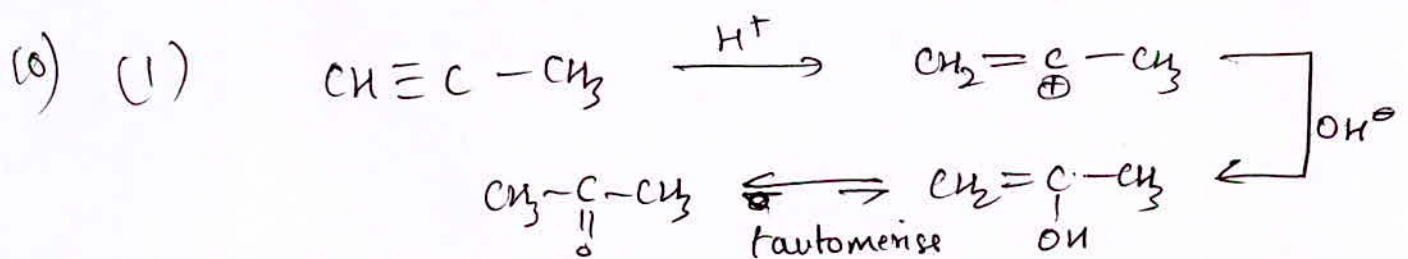 10) (1) CH≡C−CH₃ —H⁺→ CH₂=C⊕−CH₃
OH⊖
CH₃−C(=O)−CH₃ ⇌ CH₂=C(OH)−CH₃
tautomerise